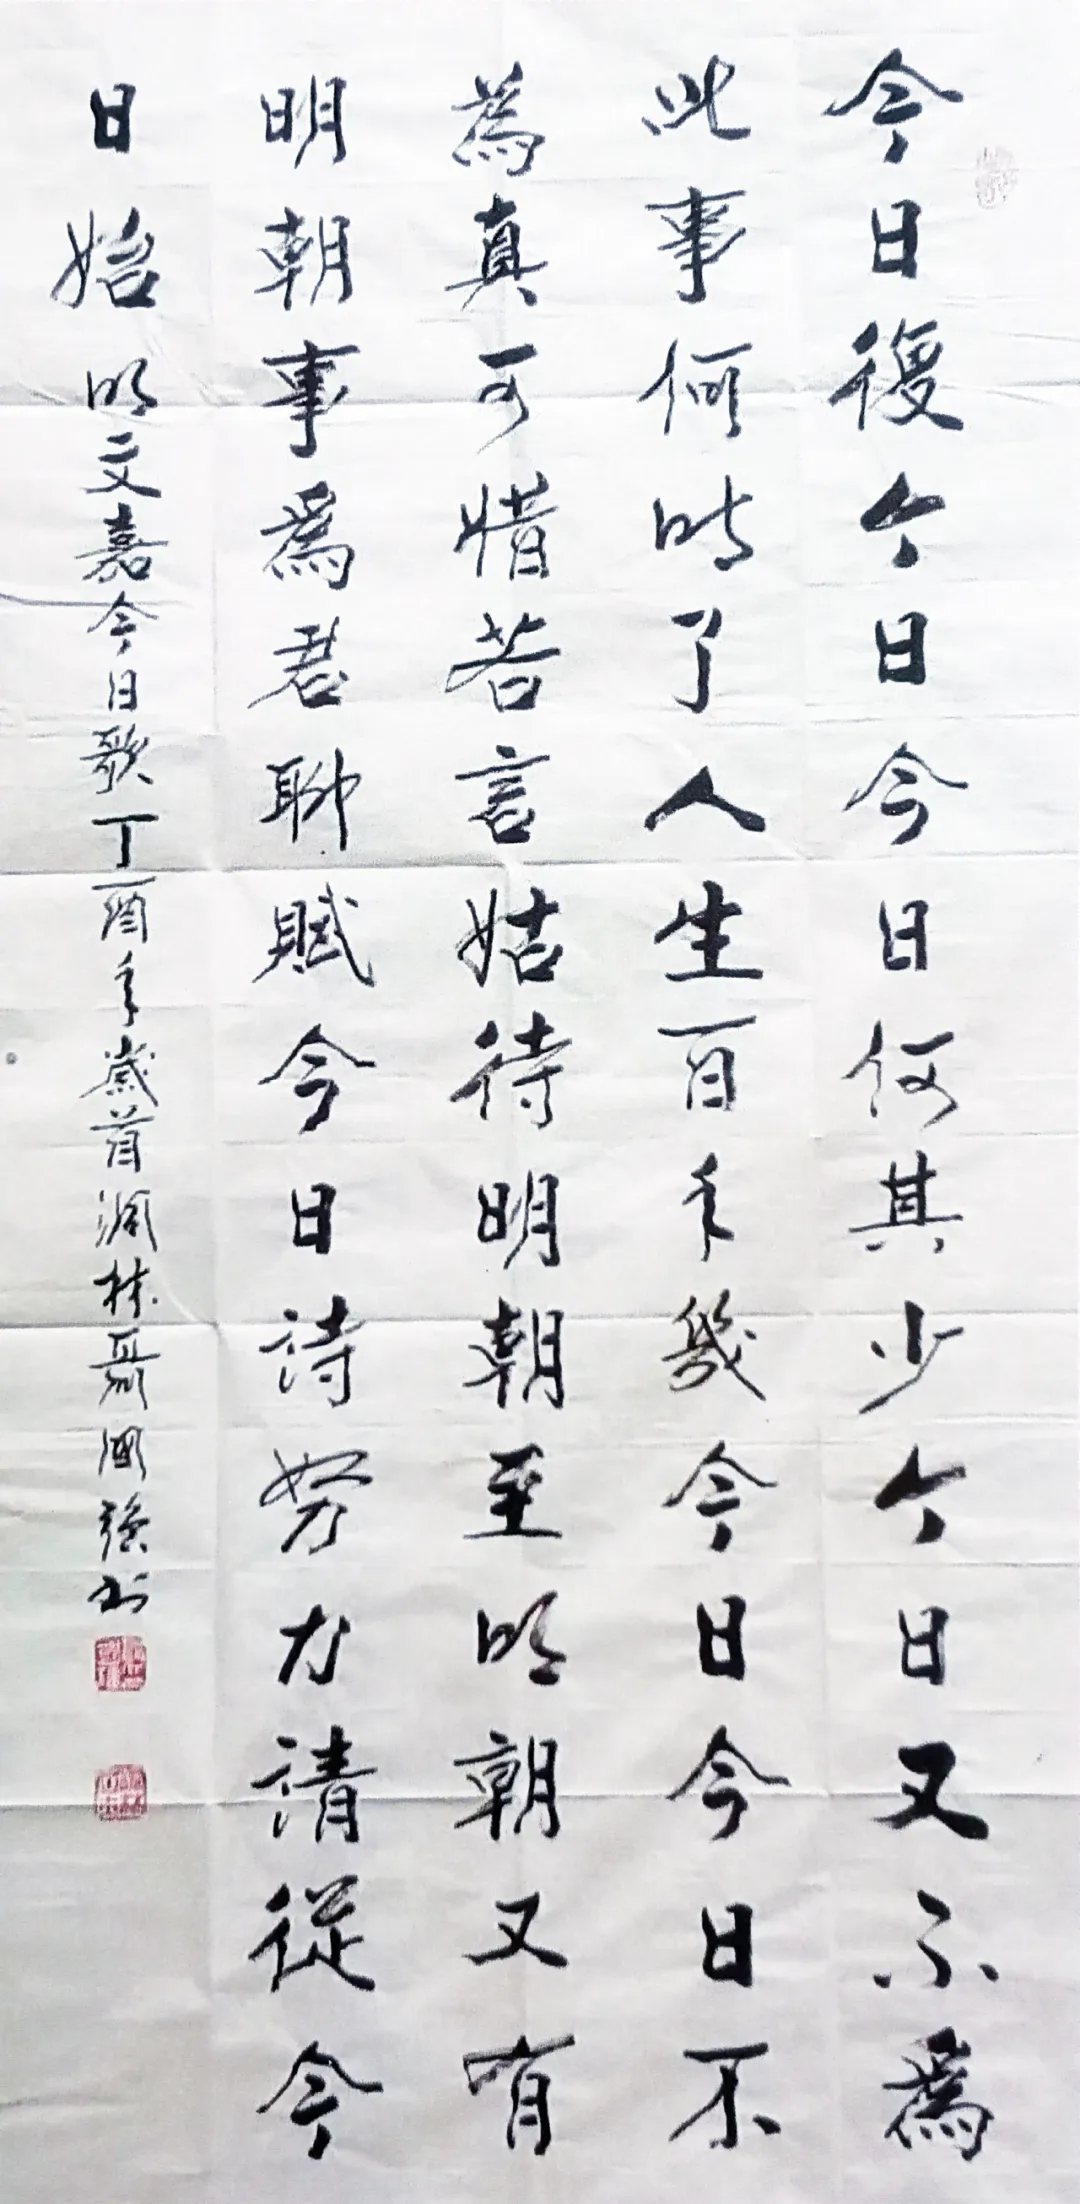 今日復今日今日何其少今日又不為
此事何時了人生百年幾今日今日不
為真可惜若言姑待明朝至明朝又有
明朝事為君聊賦今日詩努力請從今
日始 明文嘉今日歌丁酉年歲首洞林聶國強书